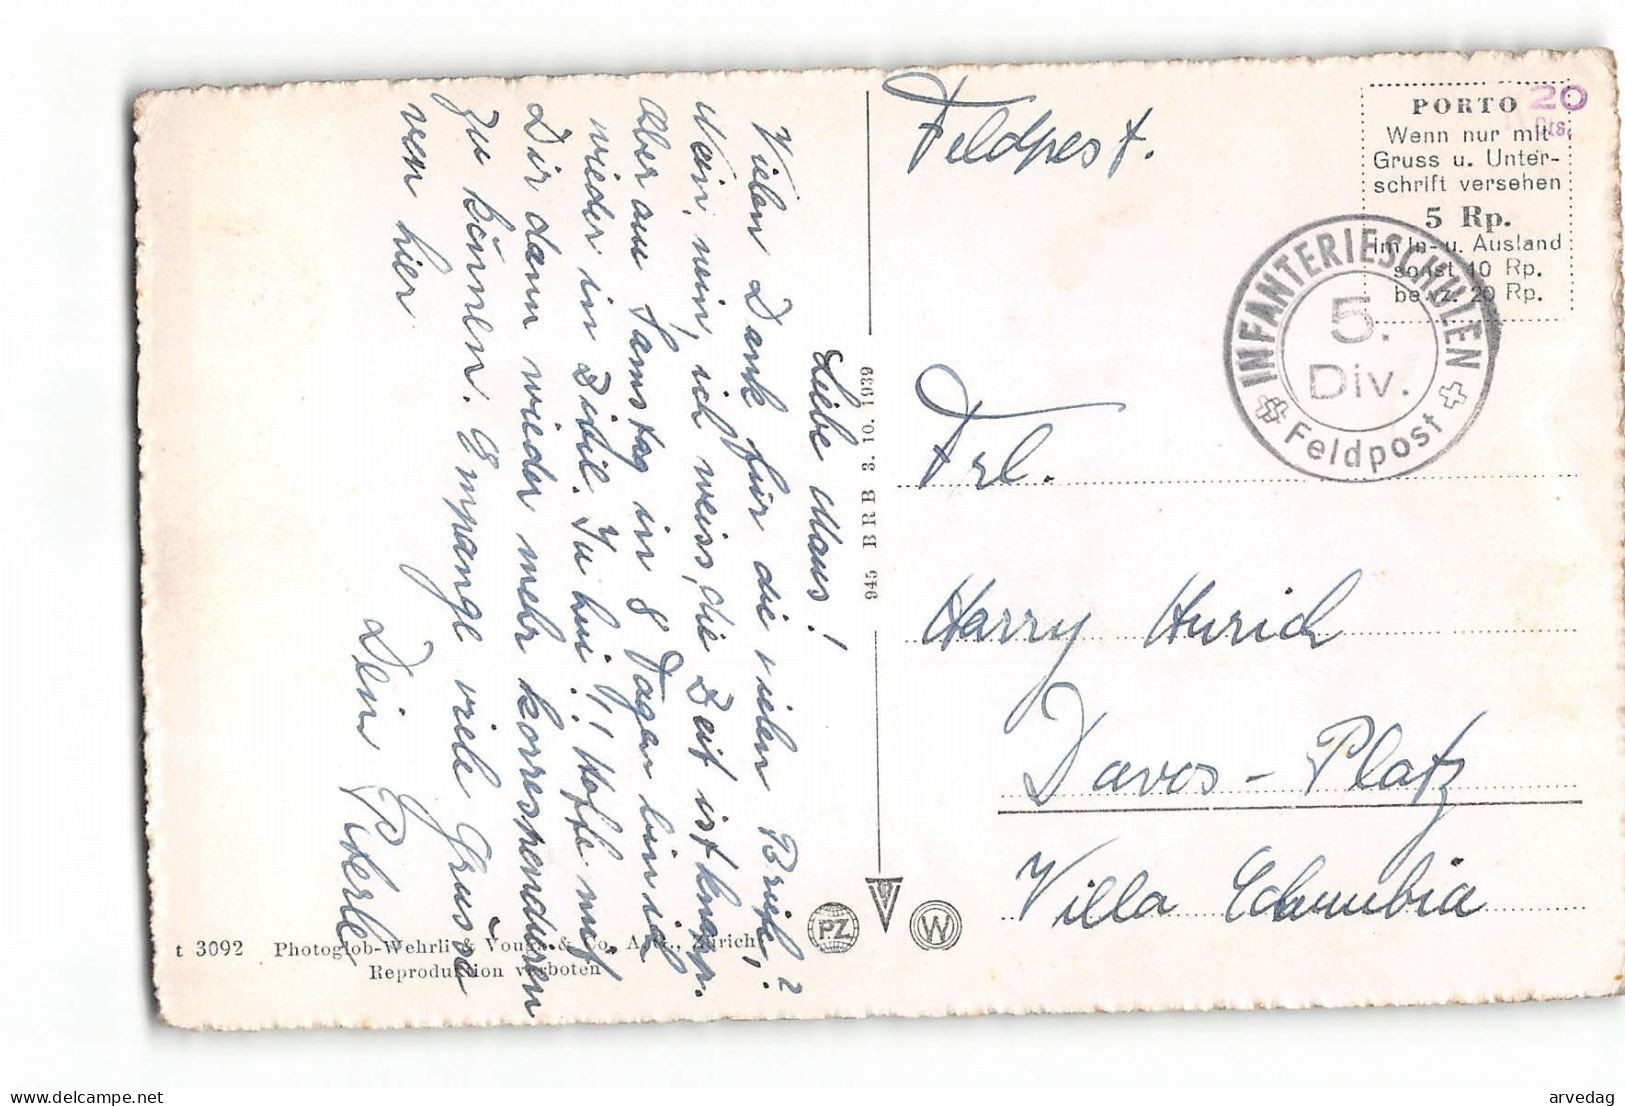 Feldpost.
PORTO
Wenn nur mit
Gruss u. Unter-
schrift versehen
5 Rp.
im In- u. Ausland
sonst 10 Rp.
bezw. 20 Rp.
20
Cts.
INFANTERIESCHULEN
5.
Div.
Feldpost
Frl.
Harry Hurich
Davos-Platz
Villa Columbia
Liebe Maus!
Vielen Dank für die vielen Briefe!?
Nein, nein, ich weiss, die Zeit ist knapp.
Aber am Samstag in 8 Tagen bin ich
wieder in Zivil. Ju hui!! Hoffe mit
Dir dann wieder mehr korrespondieren
zu können. Empfange viele Grüsse
von hier
Dein Peterle
945 BRB 3. 10. 1939
PZ
W
t 3092 Photoglob-Wehrli & Vouga & Co. A.G., Zürich
Reproduktion verboten
delcampe.net
arvedag